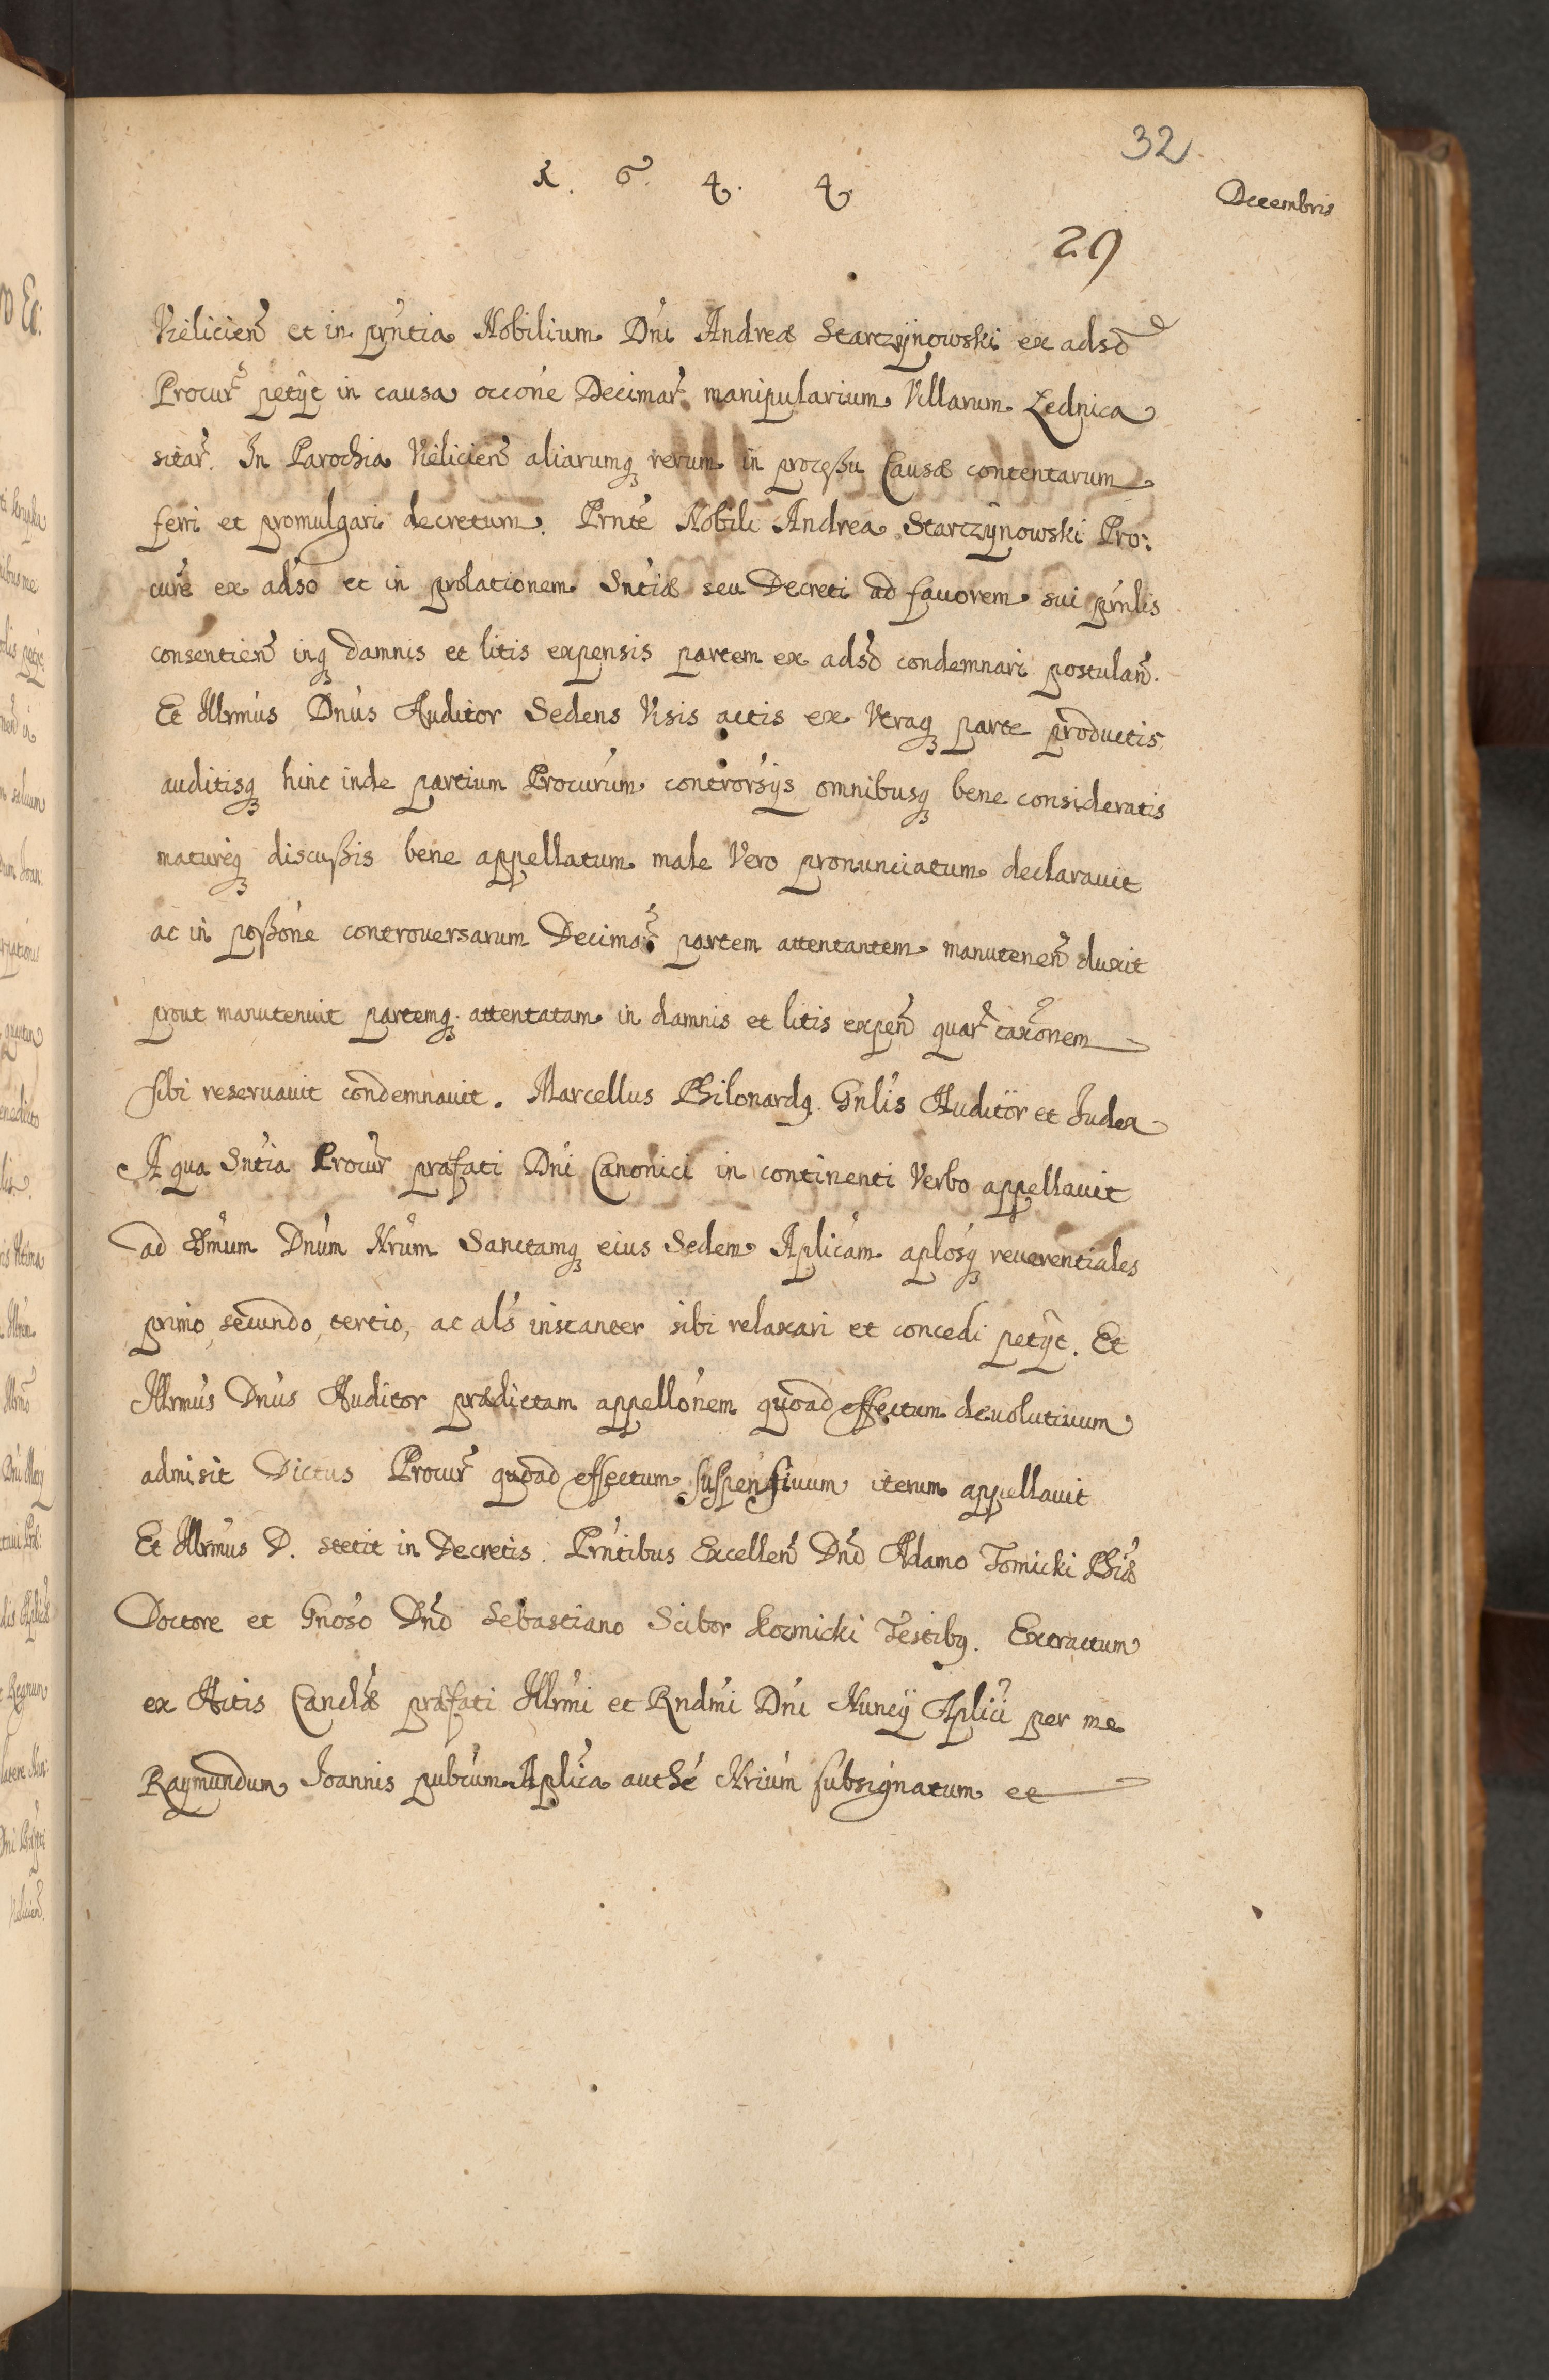 32
1. 6. 4. 4.
Decembris
29
Vieliciens̃ et in pn̄tia Nobilium Dn̄i Andreæ Starczynowski ex adsõ
Procur̃ petÿt in causa occõne Decimar̃ manipularium Villarum Lednica
sitar̃. In Parochia Vieliciens̃ aliarumq₃ rerum in processu Causæ contentarum
ferri et promulgari decretum. Prn̄te Nobili Andrea Starczÿnowski Pro:
curẽ ex adsõ et in prolationem Sn̄tiæ seu Decreti ad fauorem sui prn̄lis
consentieñ inq₃ damnis et litis expensis partem ex adsõ condemnari postulañ.
Et Illrm̃us Dn̄us Auditor Sedens Visis actis ex Vtraq₃ parte productis
auditisq₃ hinc inde partium Procurũm controrsÿs omnibusq₃ bene consideratis
matureq₃ discussis bene appellatum male Vero pronunciatum declarauit
ac in possõne controuersarum Decimar̃ partem attentantem manuteneñ duxit
prout manutenuit partemq₃ attentatam in damnis et litis expeñ quar̃ taxõnem
sibi reseruauit condemnauit. Marcellus Philonardq. Gn̄lis Auditor et Iudex
A qua Sn̄tia Procur̃ præfati Dn̄i Canonici in continenti Verbo appellauit
ad Sm̃um Dn̄um Nr̃um Sanctamq₃ eius Sedem Aplicãm aplõsq₃ reuerentiales
primo, secundo, tertio, ac als̃ instanter sibi relaxari et concedi petÿt. Et
Illrm̃us Dn̄us Auditor prædictam appellõnem quoad effectum deuolutiuum
admisit Dictus Procur̃ quoad effectum suspensiuum iterum appellauit
Et Illrm̃us D. stetit in Decretis. Prn̄tibus Excelleñ Dn̄o Adamo Tomicki Phiæ̃
Doctore et Gnõso Dn̄o Sebastiano Scibor Kozmicki Testibq. Extractum
ex Actis Cancl̃æ præfati Illrm̃i et Rndm̃i Dn̄i Nuncÿ Aplici̇̃ per me
Raymundum Joannis pubcũm Aplĩca authẽ Nrĩum subsignatum et